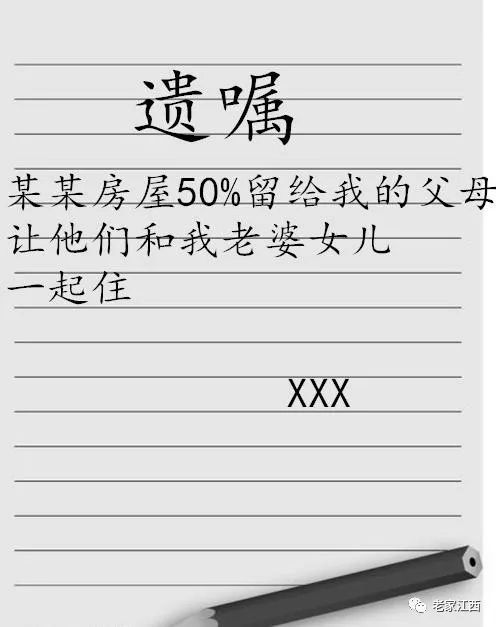 遗嘱
某某房屋50%留给我的父母
让他们和我老婆女儿
一起住
XXX
老家江西